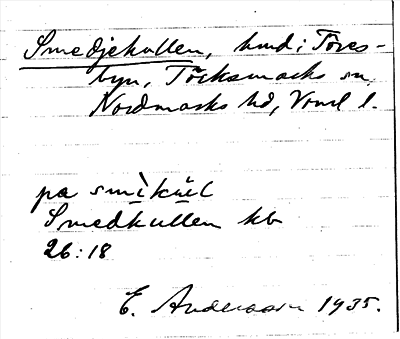 Smedjekullen, hmd i Töcks-
byn, Töcksmarks sn,
Nordmarks hd, Vrml l.
pa smìkùl
Smedkullen kb
26:18
E. Andersson 1935.